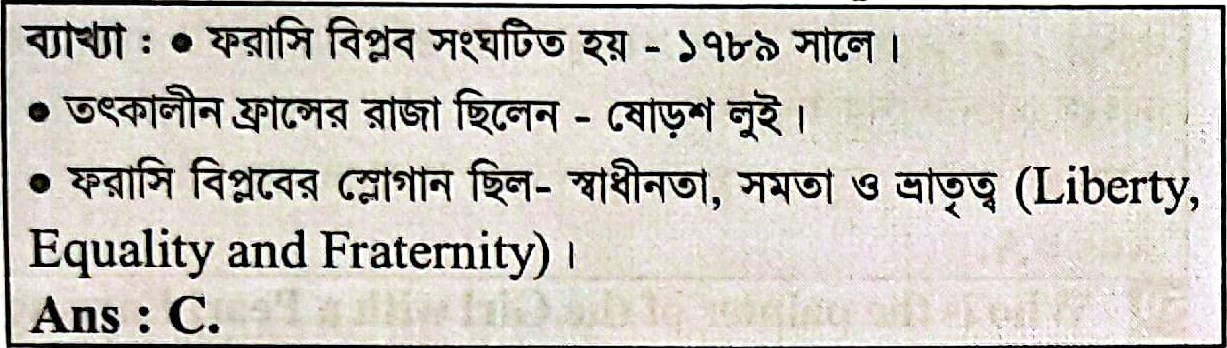 ব্যাখ্যা : ● ফরাসি বিপ্লব সংঘটিত হয় - ১৭৮৯ সালে।
● তৎকালীন ফ্রান্সের রাজা ছিলেন - ষোড়শ লুই।
● ফরাসি বিপ্লবের স্লোগান ছিল- স্বাধীনতা, সমতা ও ভ্রাতৃত্ব (Liberty,
Equality and Fraternity)।
Ans : C.